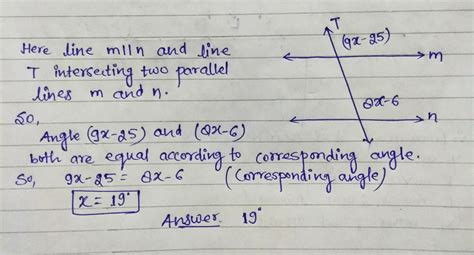 T
(9x-25)
Here line m||n and line
T intersecting two parallel
lines m and n.
m
8x-6
n
So,
Angle (9x-25) and (8x-6)
both are equal according to corresponding angle.
So, 9x-25 = 8x-6 (Corresponding angle)
x = 19°
Answer 19°